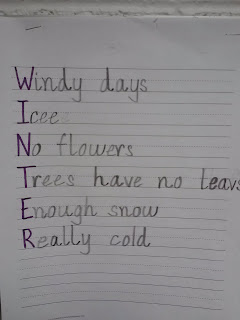 Windy days
Icee
No flowers
Trees have no leavs
Enough snow
Really cold